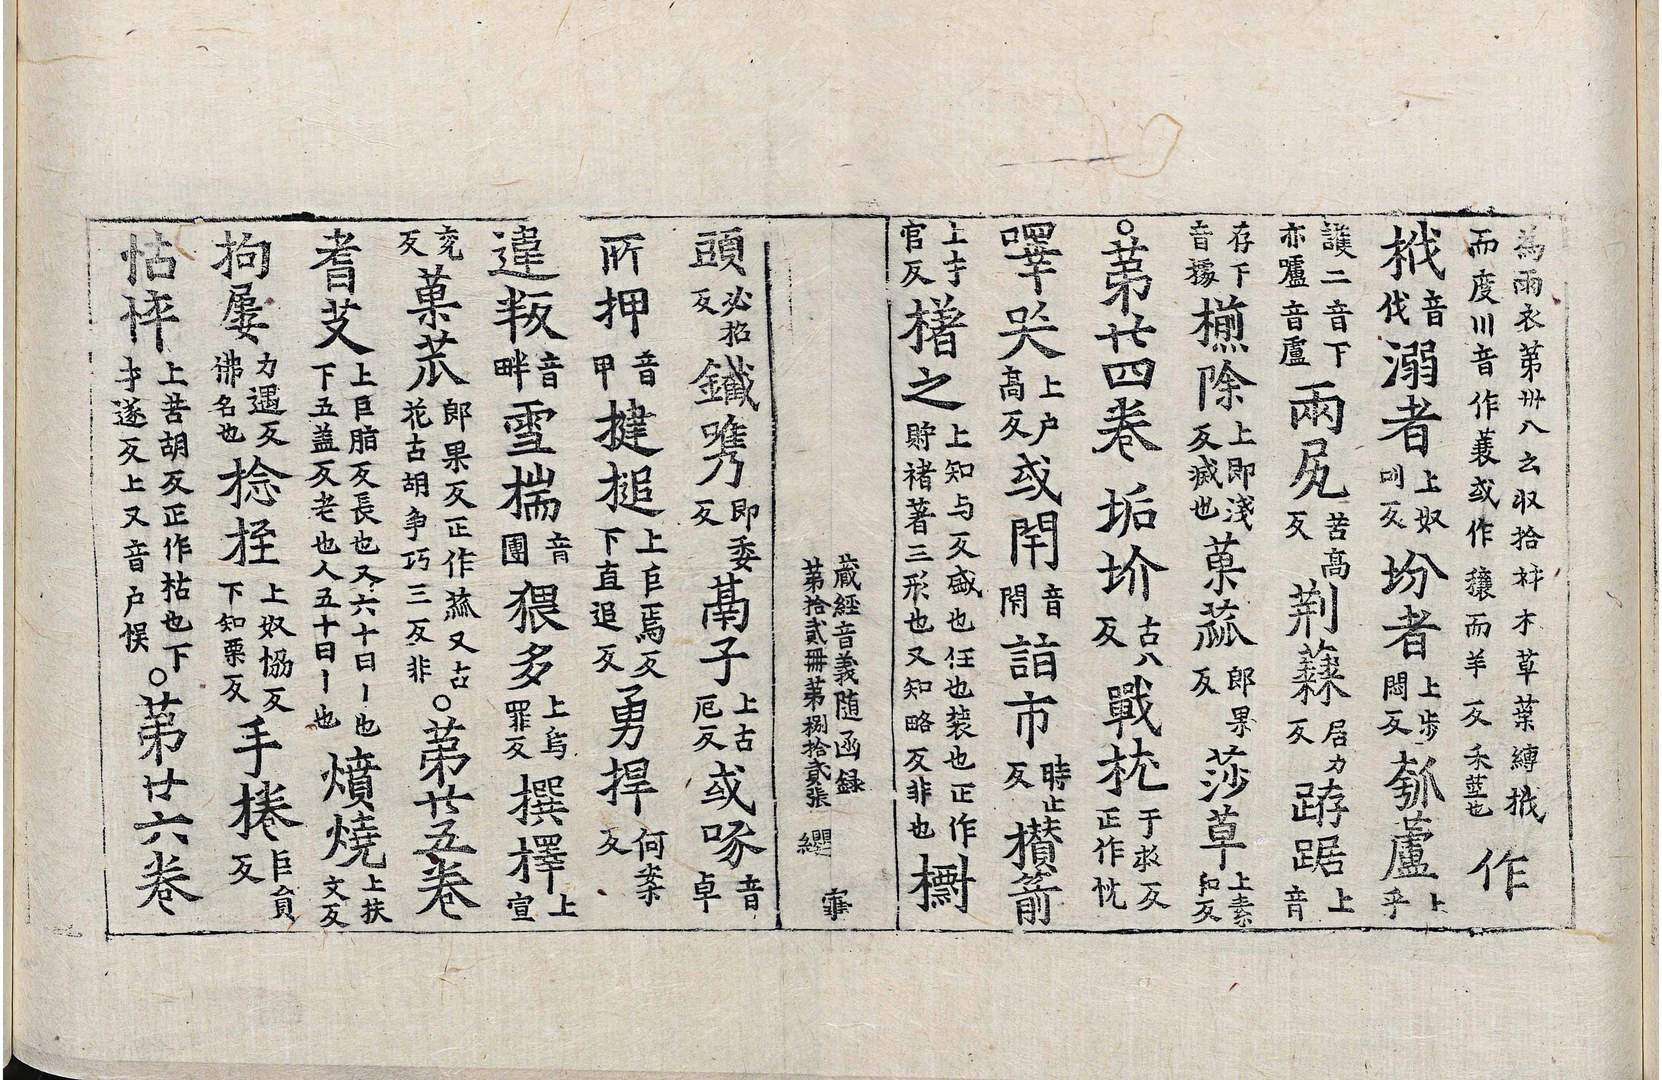 為雨衣第卅八云収拾材木草葉縛栰
而度川音作蓑或作穰而羊反禾莖也作
栰音伐溺者上奴叫反坋者上步悶反瓠蘆上乎
護二音下亦嚧音盧兩尻苦高反荆蕀居力反跱踞上音
存下音據㯭除上即淺反滅也菓蓏郎果反莎草上素和反
○第廿四卷垢圿古八反戰枕于救反正作忱
嘷哭上户高反或閇音閉詣市時止反攅箭
上才官反㯰之上知与反盛也任也装也正作貯褚著三形也又知略反非也櫥
藏經音義随函録
第拾貳冊第捌拾貳張
頭必招反鑯㗻即委反鬲子上古厄反或啄音卓
所押音甲揵搥上巨焉反下直追反勇捍何案反
違叛音畔雪揣音團猥多上烏罪反撰擇上宣
兖反菓苽郎果反正作蓏又古花古胡争巧三反非○第廿五卷
耆艾上巨脂反長也又六十曰丨也下五盖反老也人五十曰丨也燌燒上扶文反
拘屢力遇反佛名也捻挃上奴協反下知栗反手捲巨負反
怙悴上苦胡反正作枯也下才遂反上又音户悮○第廿六卷